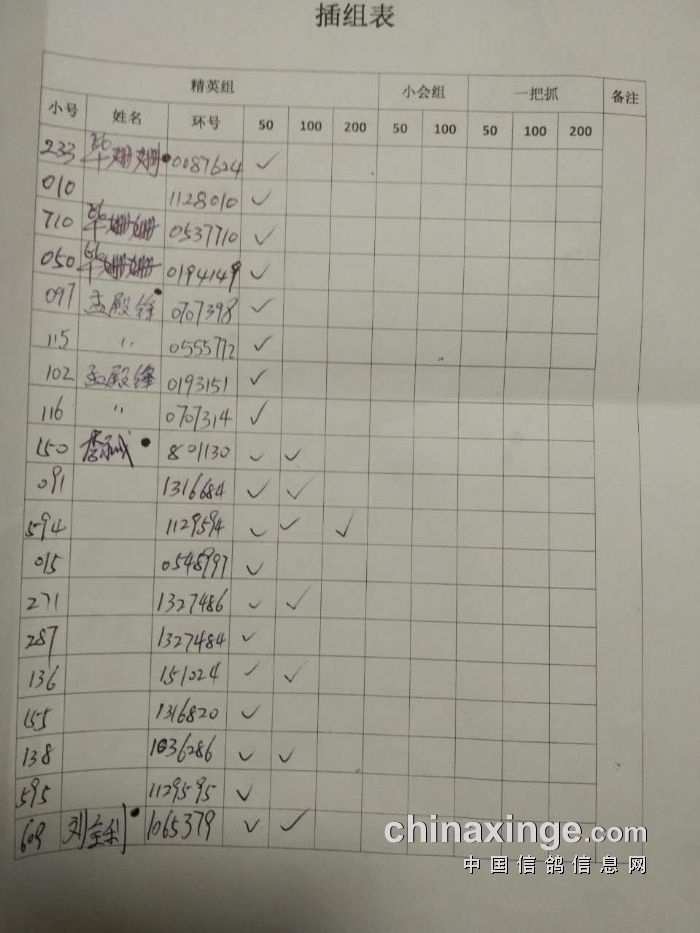 插组表
精英组 小会组 一把抓 备注
小号 姓名 环号 50 100 200 50 100 50 100 200
233 毕姗姗 0087624 ✓
010 1128010 ✓
710 毕姗姗 0537710 ✓
050 毕姗姗 0194149 ✓
097 孟殿锋 0707398 ✓
115 〃 0555772 ✓
102 孟殿锋 0193151 ✓
116 〃 0707314 ✓
150 801130 ✓ ✓
091 1316684 ✓ ✓
594 1129594 ✓ ✓ ✓
015 0548997 ✓
271 1327486 ✓ ✓
287 1327484 ✓
136 151024 ✓ ✓
155 1316820 ✓
138 1036286 ✓ ✓
595 1129595 ✓
609 刘全利 1065379 ✓ ✓
chinaxinge.com
中国信鸽信息网